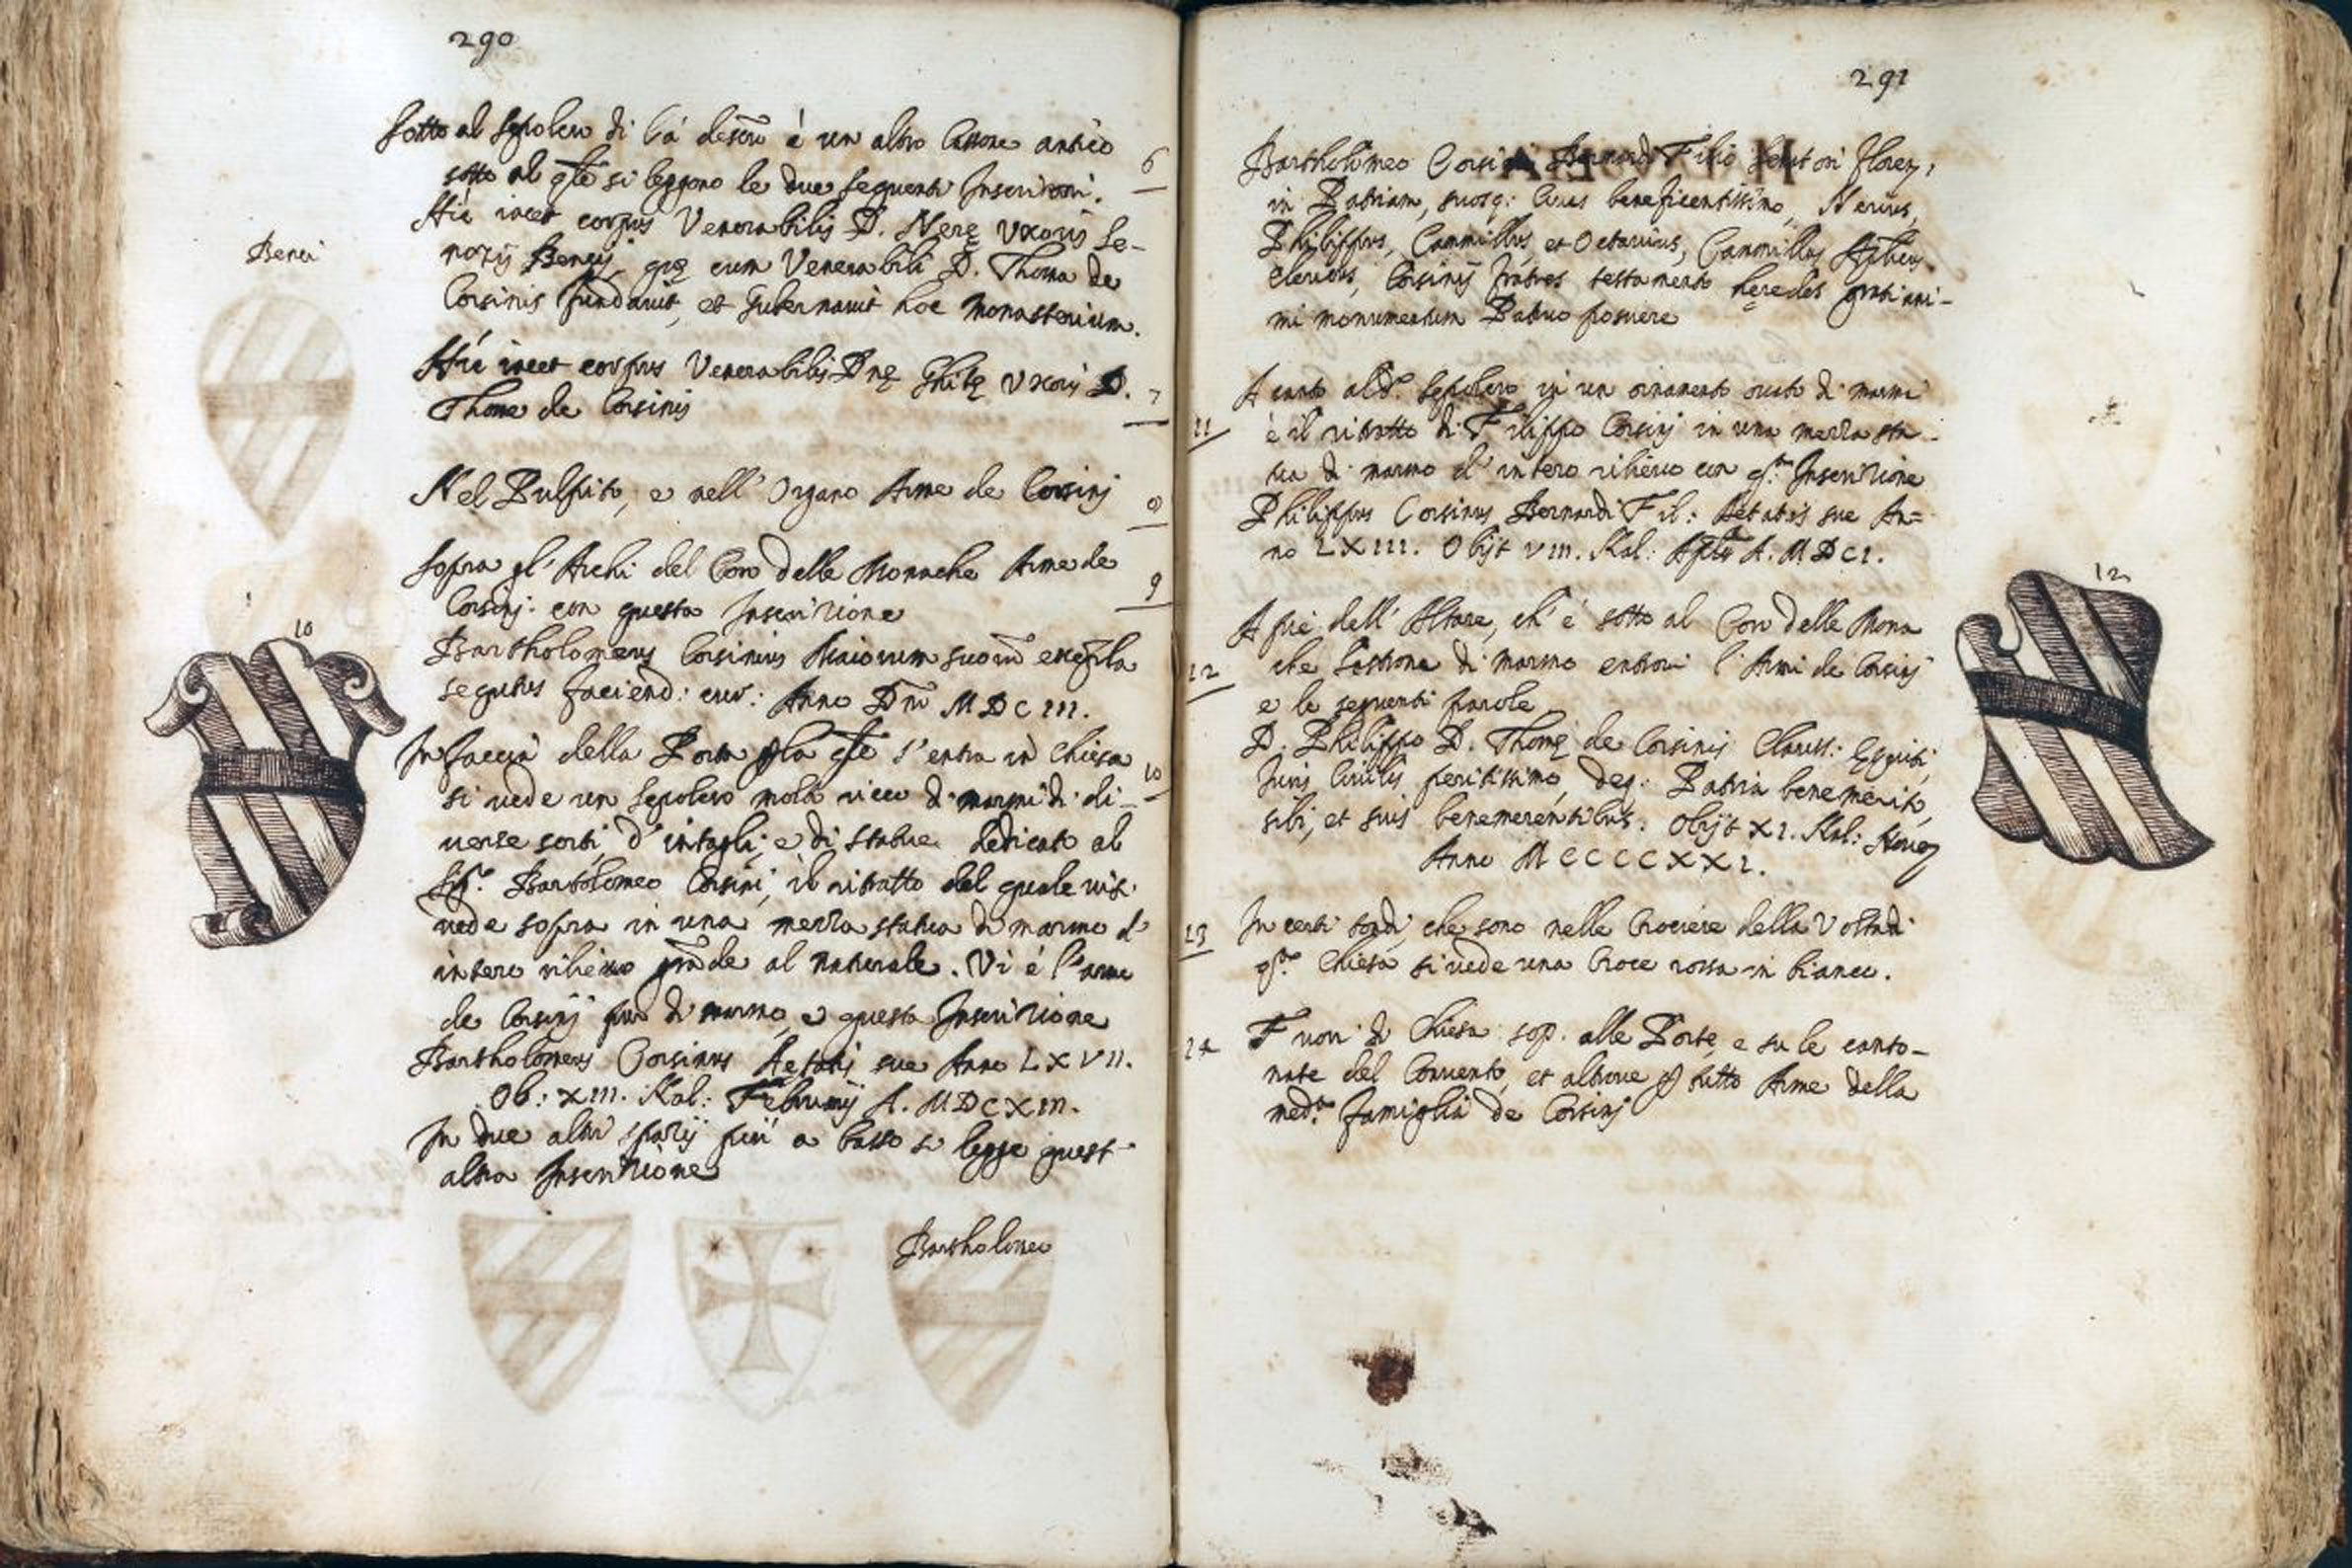 290
Sotto al Sepolcro di là descrō è un altro Cassone antico
sotto al q̄le si leggono le due seguenti Inscrizioni.
6
Hic iacet corpus Venerabilis D. Nerę Uxoris Se-
nozij Bencij, quę cum Venerabili D. Thoma de
Corsinis fundauit, et Gubernauit hoc Monasterium.
Benci
Hic iacet corpus Venerabilis Dnę Ghitę Uxoris D.
7
Thome de Corsinis
Nel Pulpito, e nell' Organo Arme de Corsinj
8
Sopra gl' Archi del Coro delle Monache Arme de
9
Corsinj: con questa Inscrizione
Bartholomeus Corsinius Maiorum suorū exempla
segutus faciend: cur: Anno Dm̄ MDCIII.
10
In faccia della Porta p la q̄le s'entra in Chiesa
10
si uede un Sepolcro molto ricco di marmi di di-
uerse sorti, d'intagli, e di statue dedicato al
Sigr. Bartolomeo Corsini, il ritratto del quale ui si
uede sopra in una mezza statua di marmo d'
intero rilieuo grāde al naturale. Vi è l'arme
de Corsinj pur di marmo, e questa Inscrizione
Bartholomeus Corsinus Aetatis sue Anno LXVII.
Ob: XIII. Kal: Februarij A. MDCXIII.
In due altri spazij più a basso si legge quest'
altra Inscrizione
Bartholomeo
291
Bartholomeo Corsino Bernardi Filio Senatori Floren;
in Patriam, suosq: Ciues beneficentissimo, Nerius,
Philippus, Cammillus, et Octauius, Cammillus
Clericus, Corsinij fratres testamento hęredes gratiani-
mi monumentum Patruo posuere
A canto al do. Sepolcro in un ornamento ouato di marmi
11
è il ritratto di Filippo Corsinj in una mezza sta-
tua di marmo d'intero rilieuo con qta. Inscrizione
Philippus Corsinus Bernardi Fil: Aetatis sue An=
no LXIII. Obijt VIII. Kal: Aplis A. MDCI.
A piè dell' Altare, ch' è sotto al Coro delle Mona
che Lastrone di marmo entroui l'Armi de Corsinj
12
e le seguenti parole
12
D. Philippo D. Thomę de Corsinis Clariss: Equiti,
Iuris Ciuilis peritissimo, deq: Patria benemerito,
sibi, et suis benemerentibus. Obijt XI. Kal: Nouem
Anno MCCCCXXI.
In certi tondi, che sono nelle Crociere della Volta di
13
qta. Chiesa si uede una Croce rossa in bianco.
Fuori di Chiesa sop. alle Porte, e su le canto-
14
nate del Conuento, et altroue p tutto Arme della
meda. famiglia de Corsinj